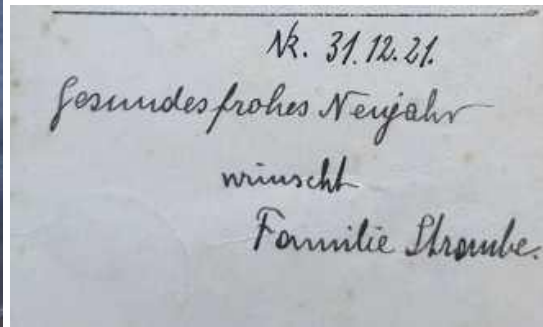 Nk. 31.12.21.
Gesundes frohes Neujahr
wünscht
Familie Strambe.